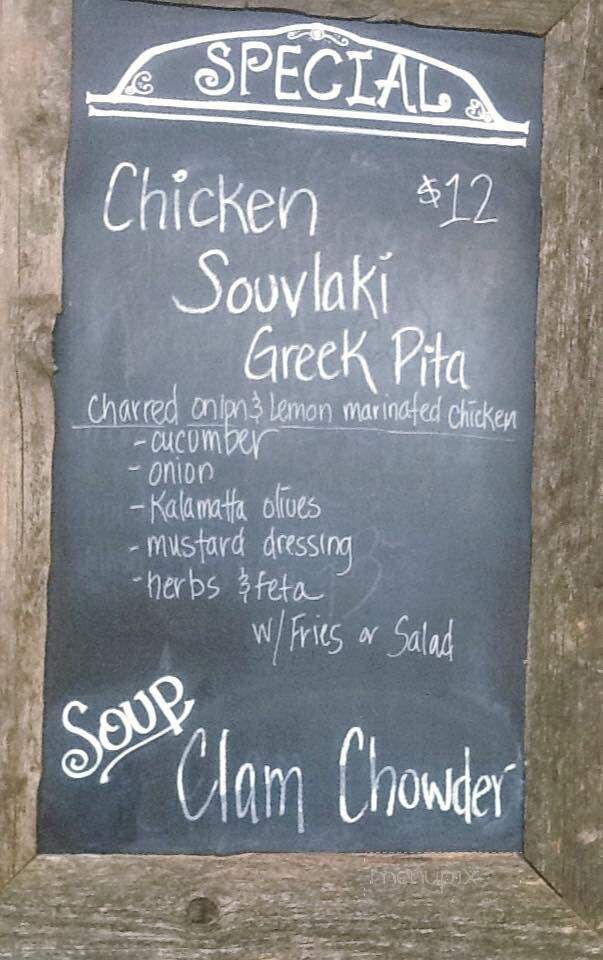 SPECIAL
Chicken $12
Souvlaki
Greek Pita
Charred onion & Lemon marinated chicken
- cucumber
- onion
- Kalamatta olives
- mustard dressing
- herbs & feta
w/ Fries or Salad
Soup
Clam Chowder
menupix